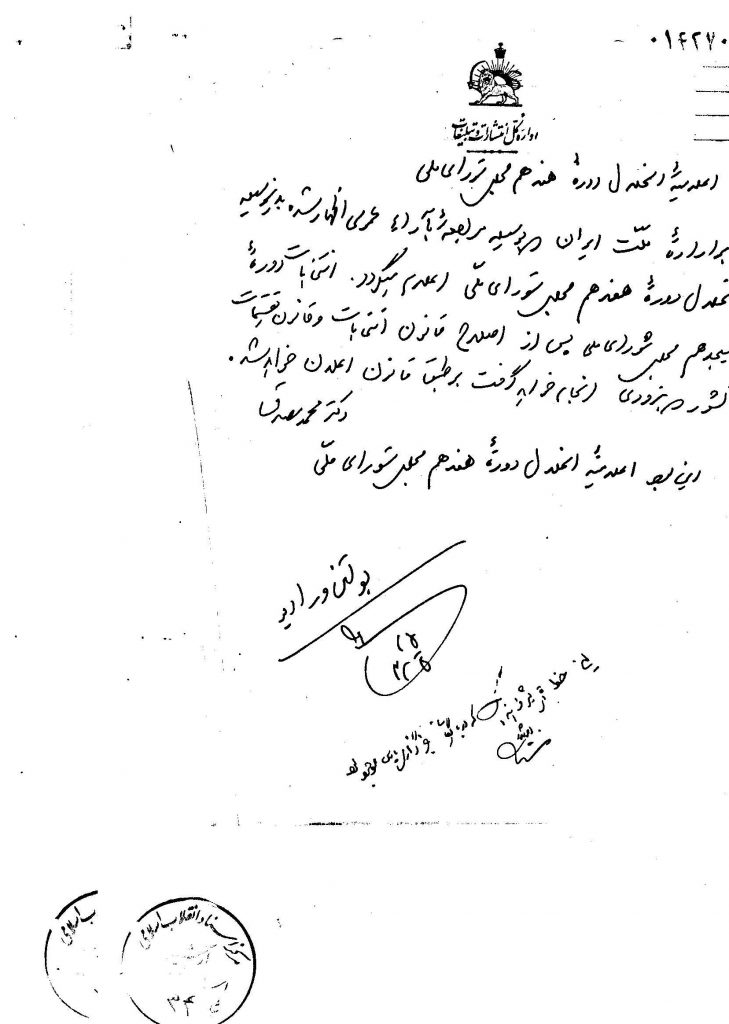 ۰۱۴۲۷۰
اداره کل انتشارات و تبلیغات
اعلامیهٔ انحلال دورهٔ هفدهم مجلس شورای ملی
بر ارادهٔ ملت ایران که بوسیله مراجعهٔ بآراء عمومی اظهار شده بدینوسیله
انحلال دورهٔ هفدهم مجلس شورای ملی اعلام میگردد. انتخابات دورهٔ
هیجدهم مجلس شورای ملی پس از اصلاح قانون انتخابات و قانون تقسیمات
کشور که بزودی انجام خواهد گرفت بر طبق قانون اعلان خواهد شد.
دکتر محمد مصدق
این بود اعلامیهٔ انحلال دورهٔ هفدهم مجلس شورای ملی
بولتن و رادیو
این خط
مرکز اسناد انقلاب اسلامی
ب اسلامی
۳۴